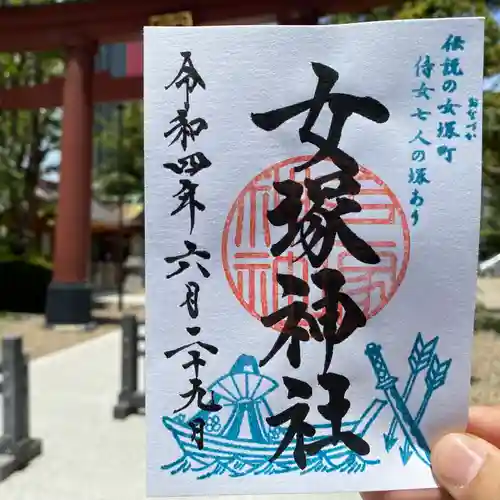 伝説の女塚町
おなづか
侍女七人の塚あり
女塚神社
令和四年六月二十九日